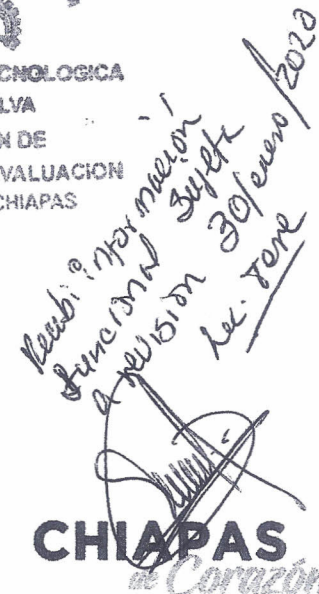 CNOLOGICA
LVA
N DE
VALUACION
CHIAPAS
Recibi información
funcional Sujeta
a revisión 30/enero/2020
Lic. Tere
CHIAPAS
de Corazón